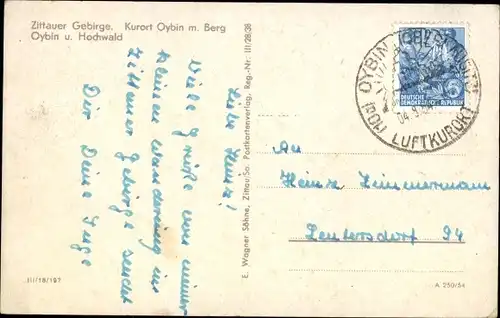 Zittauer Gebirge. Kurort Oybin m. Berg
Oybin u. Hochwald
Liebe Heinz!
Viele Grüße von einer
kleinen Wanderung ins
Zittauer Gebirge sendet
Dir Deine Inge
III/18/197
E. Wagner Söhne, Zittau/Sa. Postkartenverlag, Reg.-Nr. III/28/38
OYBIN
LUFTKURORT
DEUTSCHE
DEMOKRATISCHE REPUBLIK
An
Heinz Zimmermann
Leutersdorf 94
A 250/54